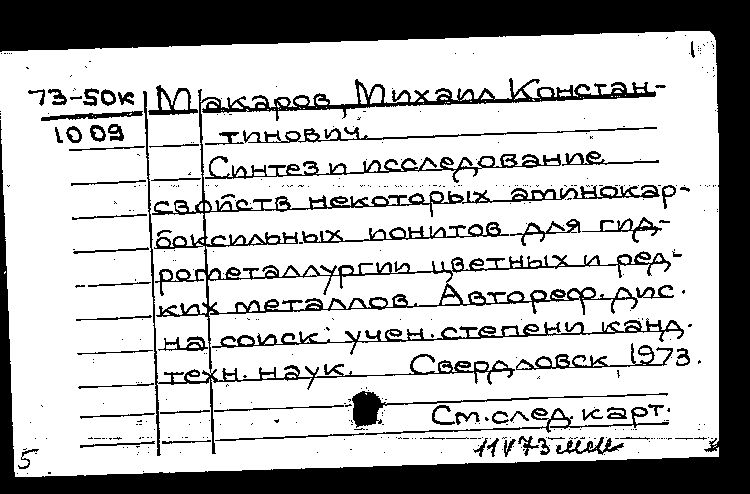 1
73-50к Макаров, Михаил Констан-
1009 тинович.
Синтез и исследование
свойств некоторых аминокар-
боксильных ионитов для гид-
рометаллургии цветных и ред-
ких металлов. Автореф. дис.
на соиск. учен. степени канд.
техн. наук. Свердловск 1973.
См. след. карт.
11 V 73
5